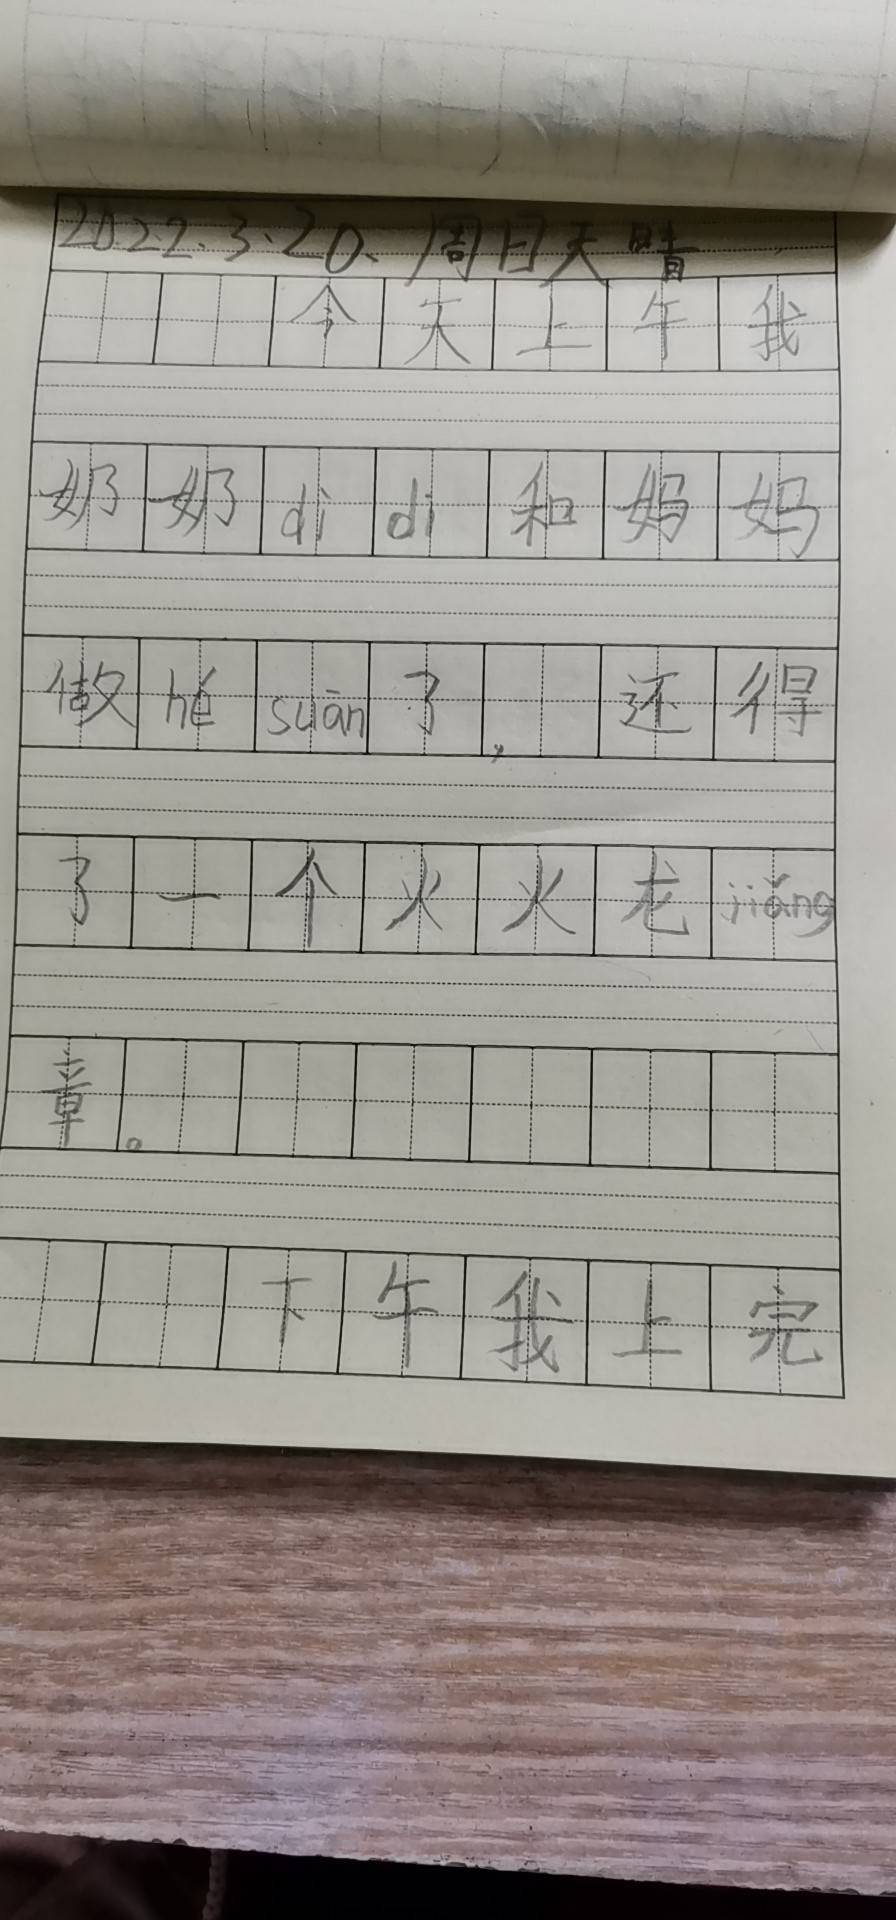 2022.3.20. 周日天晴
今天上午我
奶奶didi和妈妈
做hé suān了，还得
了一个火火龙jiǎng
章。
下午我上完